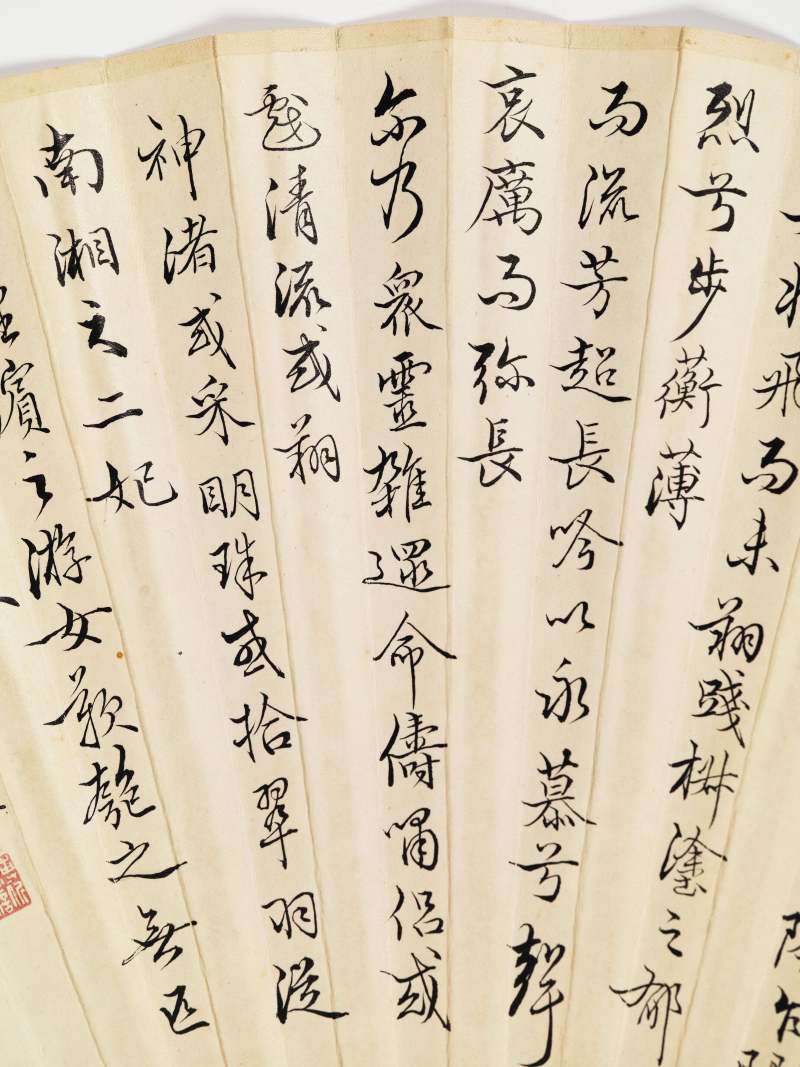 将飛而未翔踐椒塗之郁
烈兮步蘅薄
而流芳超長吟以永慕兮聲
哀厲而弥長
尓乃衆靈雜遝命儔嘯侣或
戲清流或翔
神渚或采明珠或拾翠羽從
南湘之二妃
濱之游女歎匏之無匹